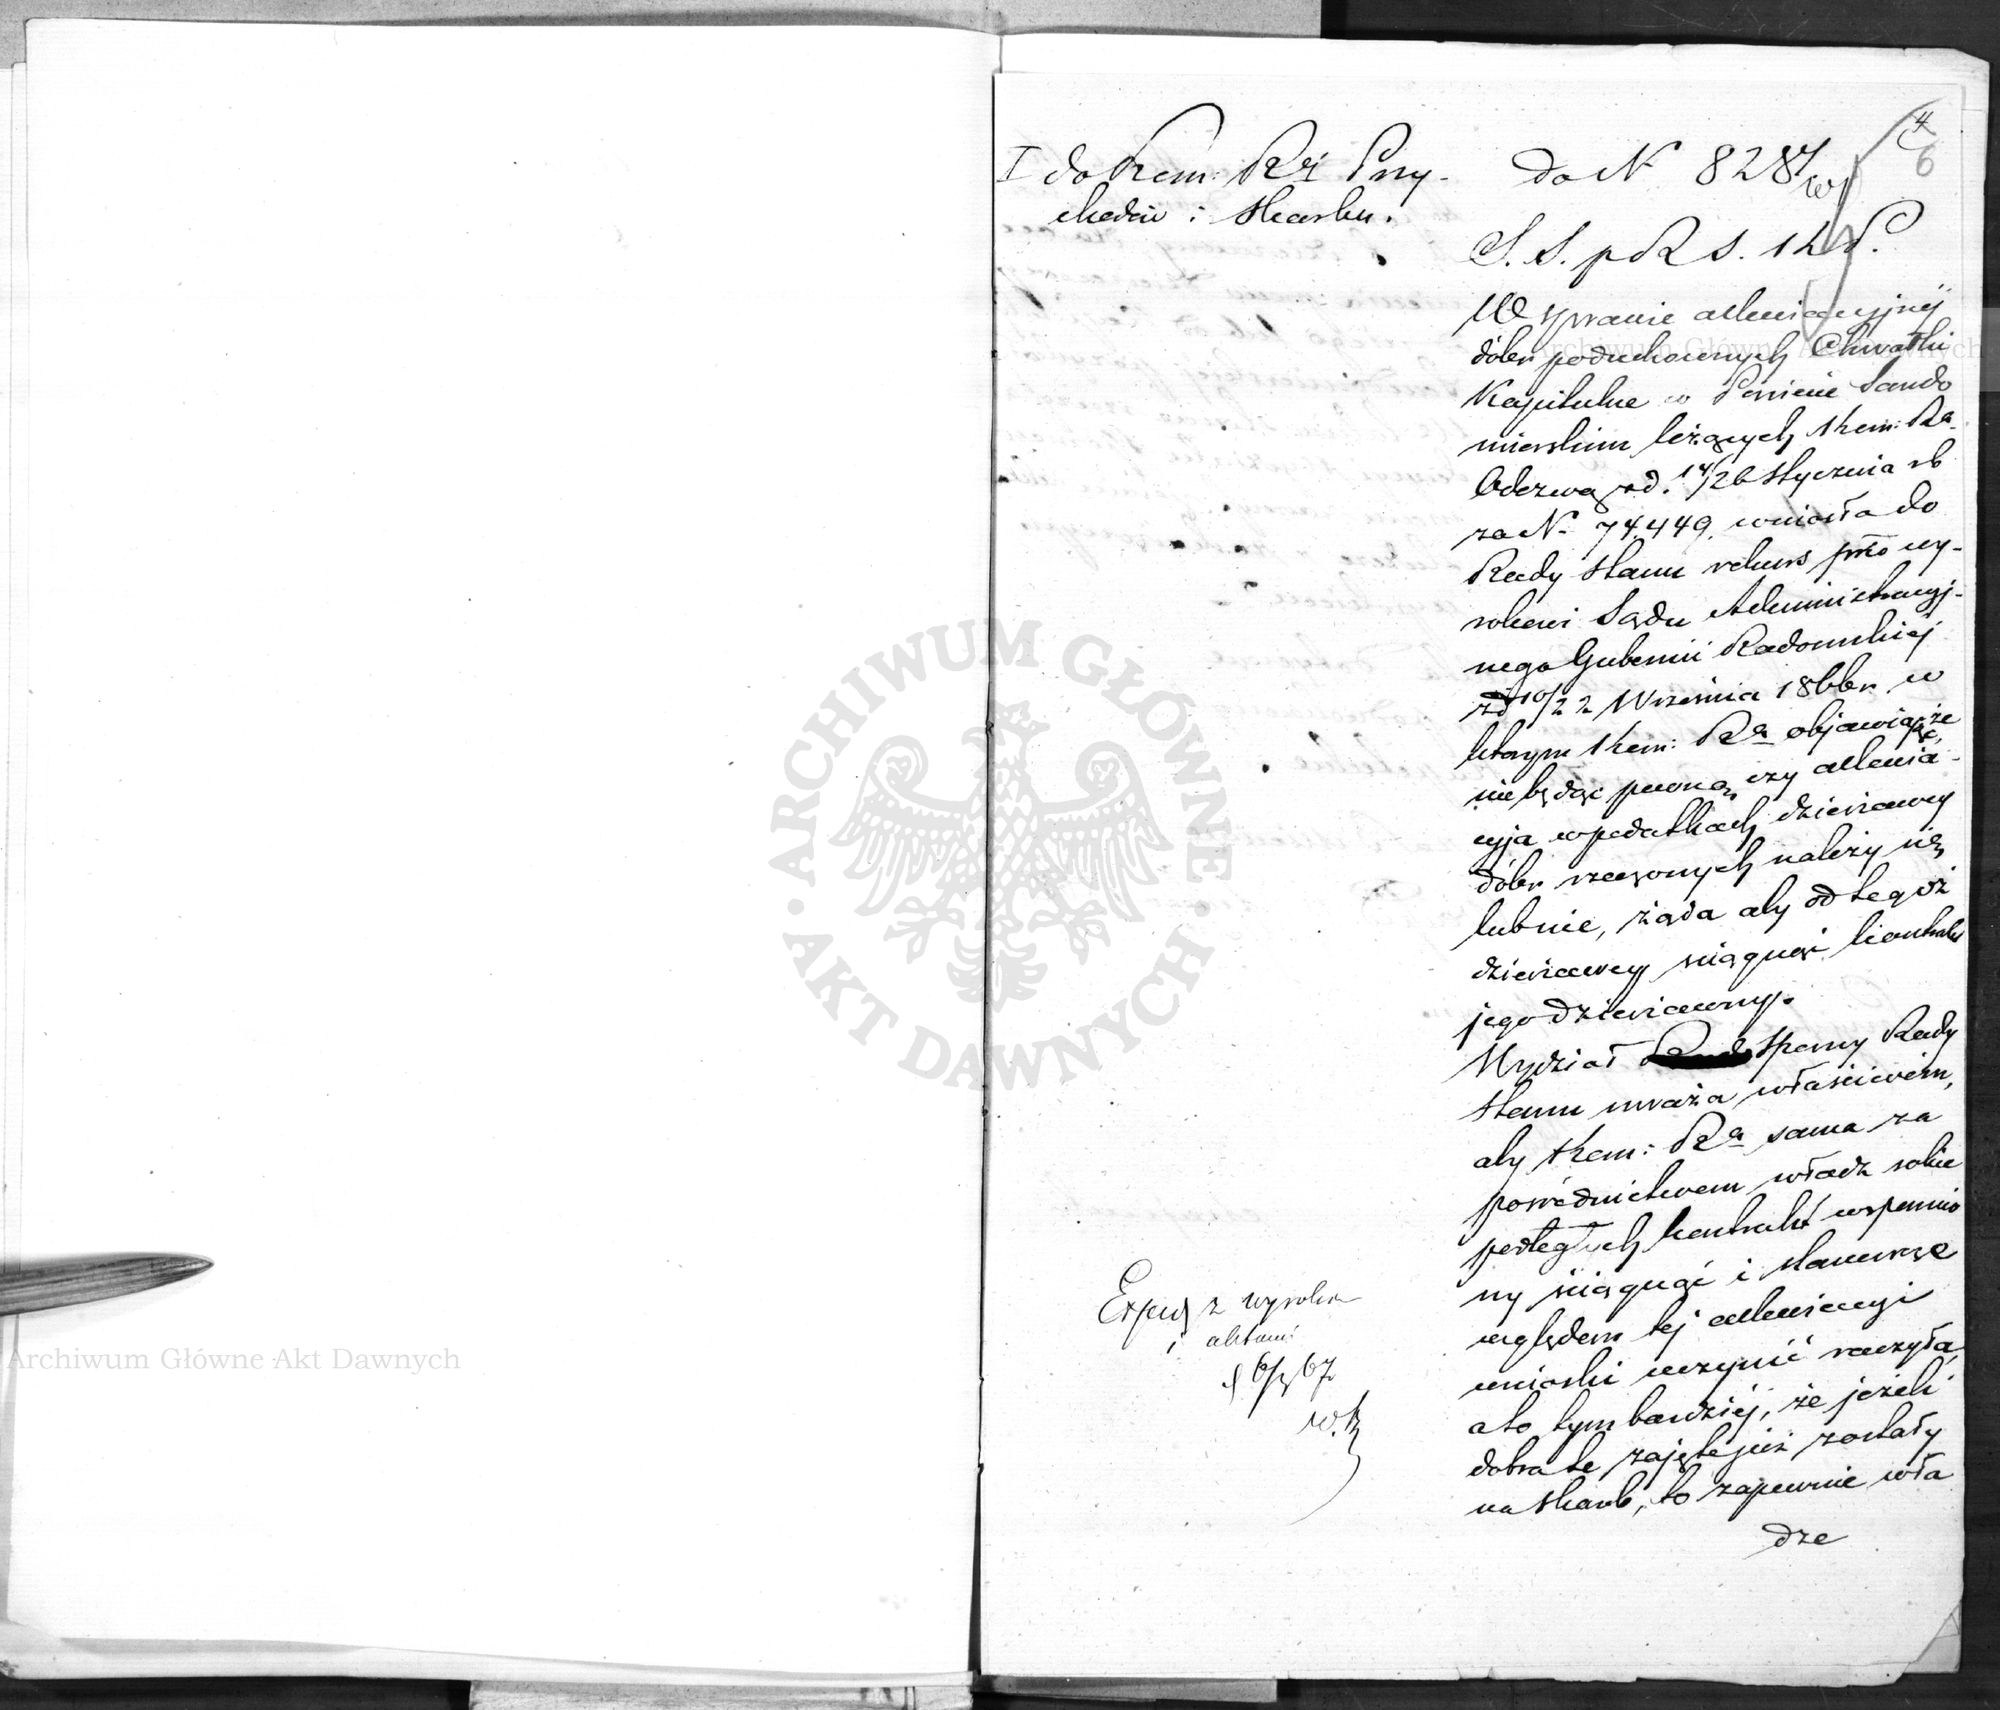 4
6
I do Kom: Rz Przy-
chodów i Skarbu.
do N 8287/w
S. S. p R S. 1 K P.
W sprawie allewiacyjnéj
dóbr poduchownych Chwałki
Kapitulne w Powiecie Sando
mierskim leżących Kom: Rz.
Odezwą z d. 14/26 Stycznia rb
za N. 74,449, wniosła do
Rady Stanu rekurs prko wy-
rokowi Sądu Administracyj-
nego Gubernii Radomskiéj
z d 10/22 Września 1866r w
którym Kom: Rz objawiając, że
nie będąc pewną, czy allewia-
cyja w podatkach, dzierżawcy
dóbr rzeczonych należy się,
lub nie, żąda aby od tegoż
dzierżawcy ściągnąć kontrakt
jego dzierżawny.
Wydział Sporny Rady
Stanu uważa właściwem,
aby Kom: Rz sama za
pośrednictwem władz sobie
podległych kontrakt wspomnio
ny ściągnąć i stanowcze
względem tej allewiacyi
wnioski uczynić raczyła,
a to tym bardziéj, że jeżeli
dobra te zajęte już zostały
na skarb, to zapewnie wła
dze
z wyroku
i aktami
6/3 67
Archiwum Główne Akt Dawnych
Archiwum Główne Akt Dawnych
· ARCHIWUM GŁÓWNE · AKT DAWNYCH